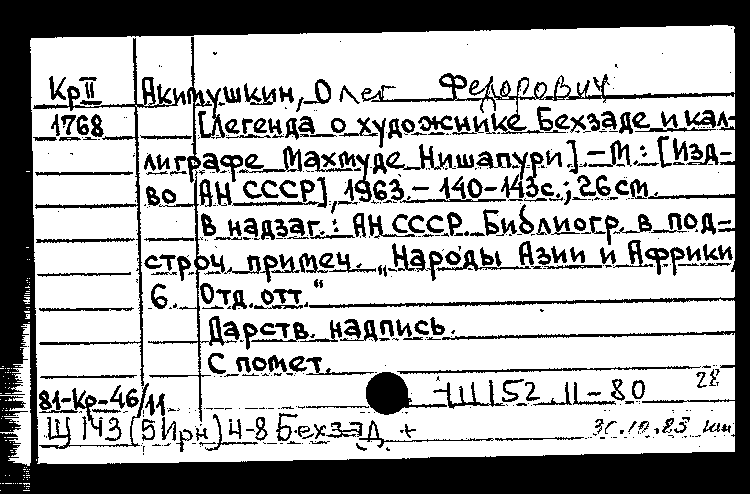 Кр II Акимушкин, Олег Федорович
1768 [Легенда о художнике Бехзаде и кал-
лиграфе Махмуде Нишапури]. – М.: [Изд-
во АН СССР], 1963. – 140-143с.; 26см.
В надзаг.: АН СССР. Библиогр. в под-
строч. примеч. „Народы Азии и Африки,
6. Отд. отт.“
Дарств. надпись.
С помет.
81-Кр-46/11 52.11-80 28
Щ143(5Ирн)4-8 Бехзад. + 31.10.85